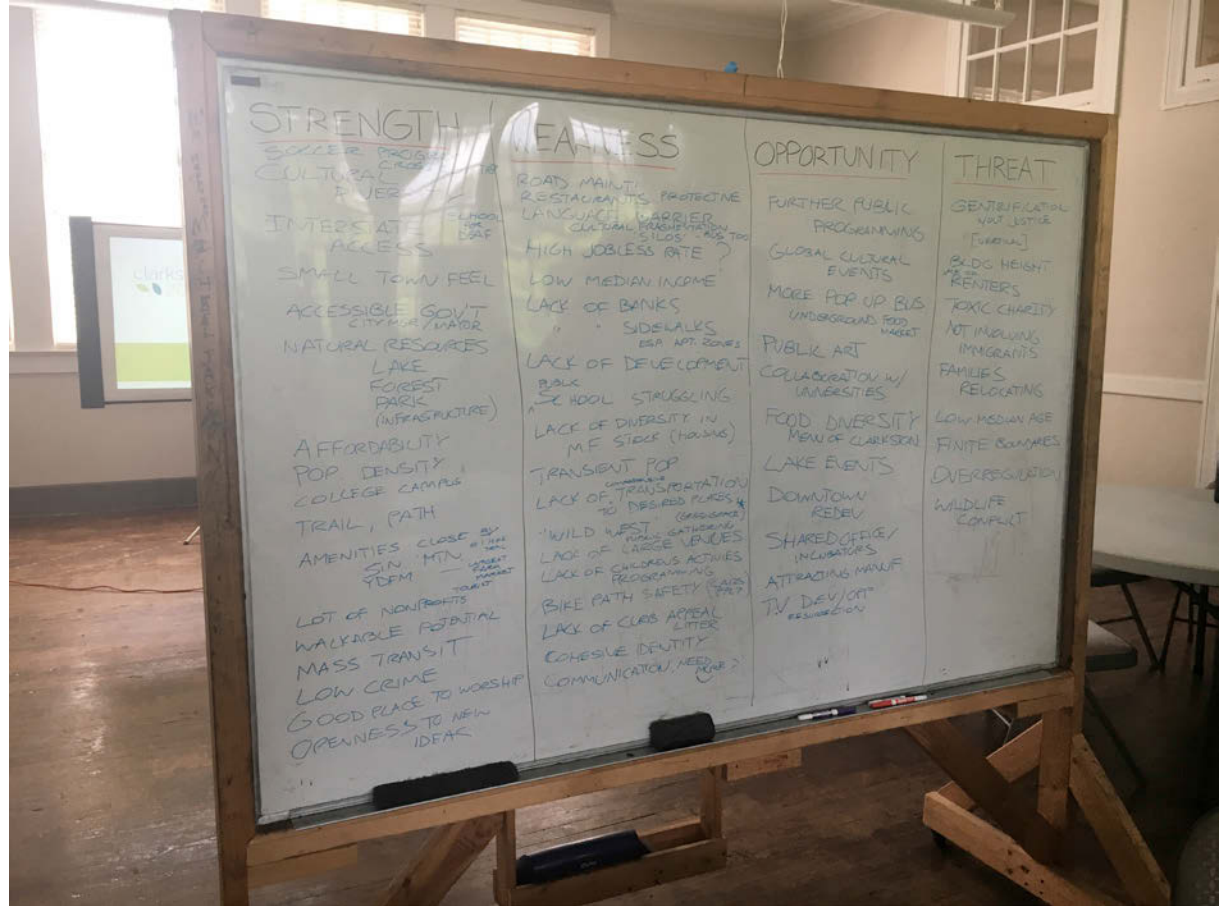 STRENGTH
SOCCER
CULTURAL
SCHOOL
FOR
DEAF
ACCESS
SMALL TOWN FEEL
ACCESSIBLE GOV'T
CITY MGR / MAYOR
NATURAL RESOURCES
LAKE
FOREST
PARK
(INFRASTRUCTURE)
AFFORDABILITY
POP DENSITY
COLLEGE CAMPUS
TRAIL, PATH
AMENITIES CLOSE BY
MTN
YDFM —
MARKET
TOURIST
LOT OF NONPROFITS
WALKABLE POTENTIAL
MASS TRANSIT
LOW CRIME
GOOD PLACE TO WORSHIP
OPENNESS TO NEW
IDEAS
ROAD
RESTAURANTS PROTECTIVE
LANGUAGE BARRIER
CULTURAL FRAGMENTATION
SILOS
HIGH JOBLESS RATE ?
LOW MEDIAN INCOME
LACK OF BANKS
" " SIDEWALKS
APT. ZONES
LACK OF DEVELOPMENT
PUBLIC
SCHOOL STRUGGLING
LACK OF DIVERSITY IN
M.F. STOCK (HOUSING)
TRANSIENT POP
LACK OF TRANSPORTATION
TO DESIRED PLACES
(GREENSPACE)
"WILD WEST
PUBLIC GATHERING
LACK OF LARGE VENUES
LACK OF CHILDRENS ACTIVIES
PROGRAMMING
BIKE PATH SAFETY
LACK OF CURB APPEAL
LITTER
COHESIVE IDENTITY
COMMUNICATION, NEED
MORE?
OPPORTUNITY
FURTHER PUBLIC
PROGRAMMING
GLOBAL CULTURAL
EVENTS
MORE POP UP BUS
UNDERGROUND FOOD
MARKET
PUBLIC ART
COLLABORATION W/
UNIVERSITIES
FOOD DIVERSITY
MENU OF CLARKSTON
LAKE EVENTS
DOWNTOWN
REDEV
SHARED OFFICE/
INCUBATORS
ATTRACTING MANUF
TV DEV/OPP
THREAT
GENTRIFICATION
W/OUT JUSTICE
[VERTICAL]
BLDG HEIGHT
RENTERS
TOXIC CHARITY
NOT INVOLVING
IMMIGRANTS
FAMILIES
RELOCATING
LOW MEDIAN AGE
FINITE BOUNDARIES
OVERREGULATION
WILDLIFE
CONFLICT